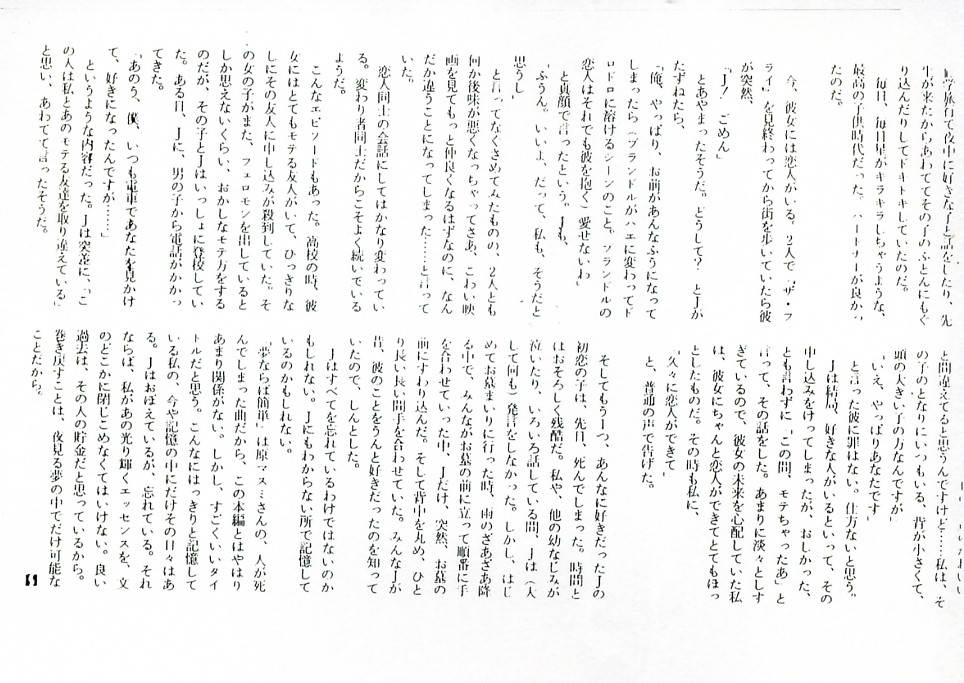 修学旅行で夜中に好きな子と話をしたり、先
生が来たからあわててその子のふとんにもぐ
り込んだりしてドキドキしていたのだ。
毎日、毎日星がキラキラしちゃうような、
最高の子供時代だった。パートナーが良かっ
たのだ。
今、彼女には恋人がいる。2人で「ザ・フ
ライ」を見終わってから街を歩いていたら彼
が突然、
「J! ごめん」
とあやまったそうだ。どうして? とJが
たずねたら、
「俺、やっぱり、お前があんなふうになって
しまったら(ブランドルがハエに変わってド
ロドロに溶けるシーンのこと。ブランドルの
恋人はそれでも彼を抱く)愛せないわ」
と真顔で言ったという。Jも、
「ふうん。いいよ、だって、私も、そうだと
思うし」
と言ってなぐさめてみたものの、2人とも
何か後味が悪くなっちゃってさあ、こわい映
画を見てもっと仲良くなるはずなのに、なん
だか違うことになってしまった……と言って
いた。
恋人同士の会話にしてはかなり変わってい
る。変わり者同士だからこそよく続いている
ようだ。
こんなエピソードもあった。高校の時、彼
女にはとてもモテる友人がいて、ひっきりな
しにその友人に申し込みが殺到していた。そ
の女の子がまた、フェロモンを出していると
しか思えないくらい、おかしなモテ方をする
のだが、その子とJはいっしょに登校してい
た。ある日、Jに、男の子から電話がかかっ
てきた。
「あのう、僕、いつも電車であなたを見かけ
て、好きになったんですが……」
というような内容だった。Jは突差に、「こ
の人は私とあのモテる友達を取り違えている」
と思い、あわてて言ったそうだ。
と間違えてると思うんですけど……私は、そ
の子のとなりにいつもいる、背が小さくて、
頭の大きい子の方なんですが」
「いえ、やっぱりあなたです」
と言った彼に罪はない。仕方ないと思う。
Jは結局、好きな人がいるといって、その
申し込みをけってしまったが、おしかった、
とも言わずに「この間、モテちゃったあ」と
言って、その話をした。あまりに淡々としす
ぎているので、彼女の未来を心配していた私
は、彼女にちゃんと恋人ができてとてもほっ
としたものだ。その時も私に、
「久々に恋人ができて」
と、普通の声で告げた。
そしてもう1つ、あんなに好きだったJの
初恋の子は、先日、死んでしまった。時間と
はおそろしく残酷だ。私や、他の幼なじみが
泣いたり、いろいろ話している間、Jは(大
して何も)発言をしなかった。しかし、はじ
めてお墓まいりに行った時、雨のざあざあ降
る中で、みんながお墓の前に立って順番に手
を合わせていた中、Jだけ、突然、お墓の
前にすわり込んだ。そして背中を丸め、ひと
り長い長い間手を合わせていた。みんなJが
昔、彼のことをうんと好きだったのを知って
いたので、しんとした。
Jはすべてを忘れているわけではないのか
もしれない。Jにもわからない所で記憶して
いるのかもしれない。
「夢ならば簡単」は原マスミさんの、人が死
んでしまった曲だから、この本編とはやはり
あまり関係がない。しかし、すごくいいタイ
トルだと思う。こんなにはっきりと記憶して
いる私の、今や記憶の中にだけその日々はあ
る。Jはおぼえているが、忘れている。それ
ならば、私があの光り輝くエッセンスを、文
のどこかに閉じこめなくてはいけない。良い
過去は、その人の貯金だと思っているから。
巻き戻すことは、夜見る夢の中でだけ可能な
ことだから。